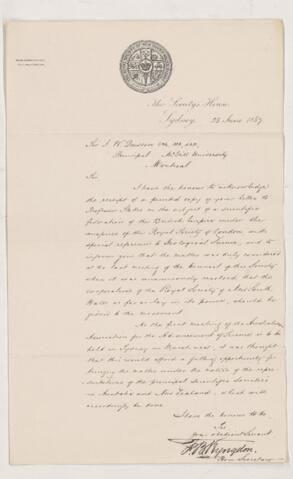 The Society's House,
Sydney, 28 June 1887
Sir J. W. Dawson
Principal McGill University
Montreal
Sir
I have the honour to acknowledge
the receipt of a printed copy of your letter to
Professor Stokes on the subject of a scientific
federation of the British Empire under the
auspices of the Royal Society of London with
special reference to Geological Science, and to
inform you that the matter was duly considered
at the last meeting of the Council of the Society
when it was unanimously resolved that the
cooperation of the Royal Society of New South
Wales as far as lay in its power, should be
given to the movement.
As the first meeting of the Australian
Association for the Advancement of Science is to be
held in Sydney in March next, it was thought
that this would afford a fitting opportunity for
bringing the matter under the notice of the repre-
sentatives of the principal Scientific Societies
in Australia and New Zealand, which will
accordingly be done
I have the honour to be
Sir
Your obedient Servant
F B Kyngdon
Hon Secretary